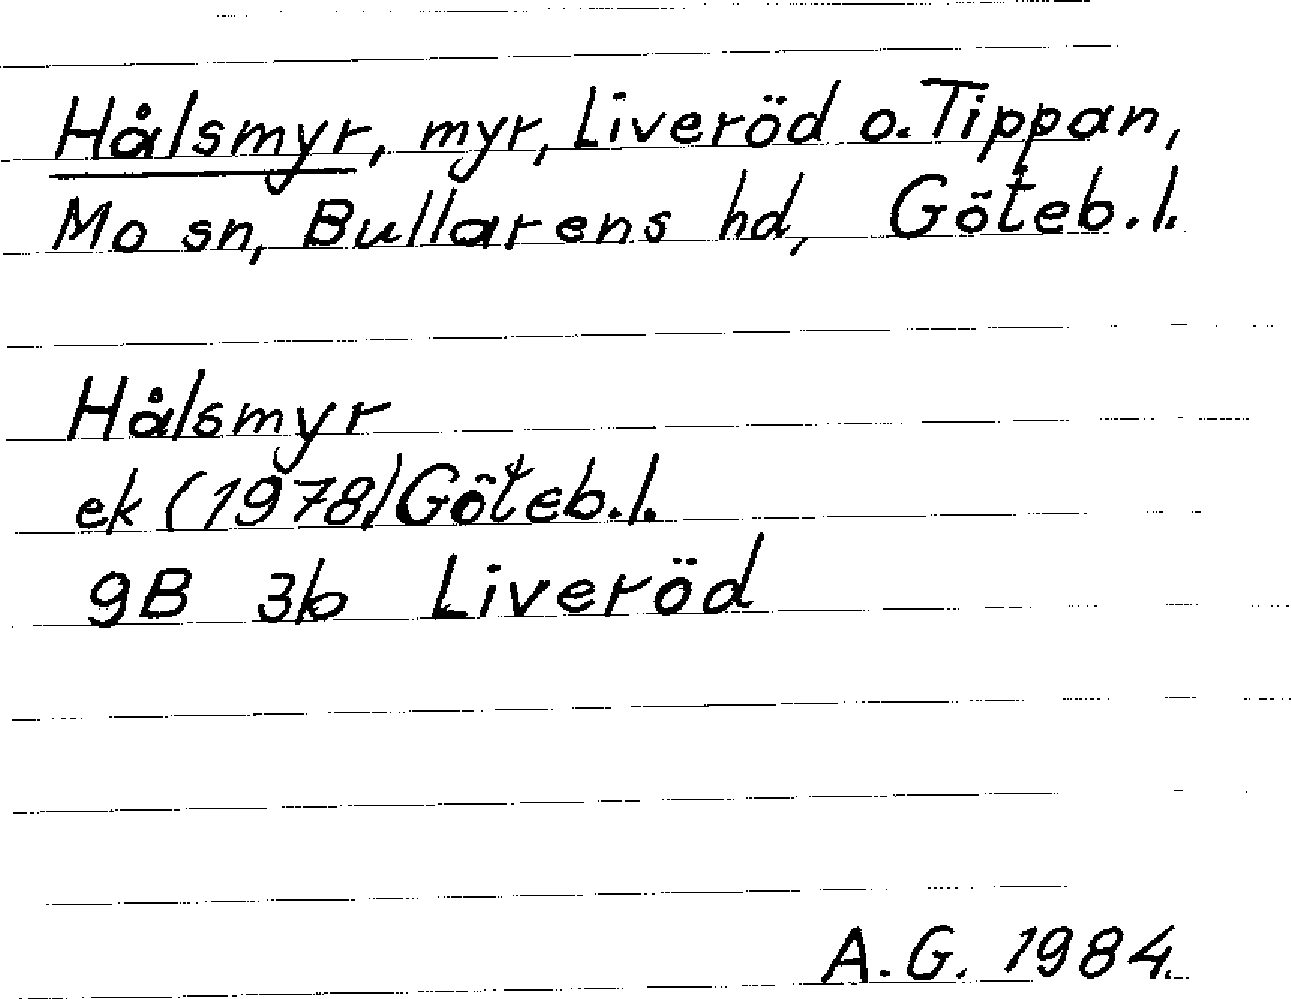 Hålsmyr, myr, Liveröd o. Tippan,
Mo sn, Bullarens hd, Göteb. l.
Hålsmyr
ek (1978) Göteb. l.
9B 3b Liveröd
A. G. 1984